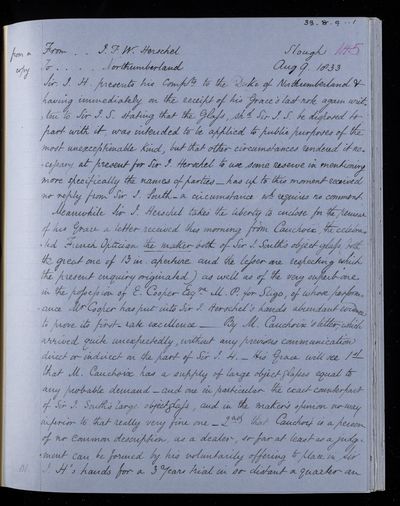 33. 8. 9 .. 1
145
from a copy
From . . J. F. W. Herschel Slough
To . . . . . Northumberland Aug 9. 1833
Sir J. H. presents his Compts to the Duke of Northumberland &
having immediately on the receipt of his Grace's last note again writ-
ten to Sir J. S. stating that the Glass, shd Sir J. S. be disposed to
part with it was intended to be applied to public purposes of the
most unexceptionable kind, but that other circumstances rendered it ne-
cessary at present for Sir J. Herschel to use some reserve in mentioning
more specifically the names of parties – has up to this moment received
no reply from Sir J. South – a circumstance wh requires no comment.
Meanwhile Sir J. Herschel takes the liberty to enclose for the perusal
of his Grace a letter received this morning from Cauchoix the celebra-
ted French Optician the maker both of Sir J. South's object glass (both
the great one of 13 in. aperture and the lesser one respecting which
the present enquiry originated) as well as of the very superb one
in the possession of E. Cooper Esqre M. P. for Sligo, of whose perform-
ance Mr Cooper has put into Sir J. Herschel's hands abundant evidence
to prove its first-rate excellence – By M. Cauchoix's letter which
arrived quite unexpectedly, without any previous communication
direct or indirect on the part of Sir J. H. – His Grace will see 1st
that M. Cauchoix has a supply of large object glasses equal to
any probable demand – and one in particular the exact counterpart
of Sir J. South's large object glass, and in the maker's opinion no way
inferior to that really very fine one – 2ndly that Cauchoix is a person
of no common description, as a dealer, so far at least as a judg-
ment can be formed by his voluntarily offering to place in Sir
J. H's hands for a 3 years trial in so distant a quarter an